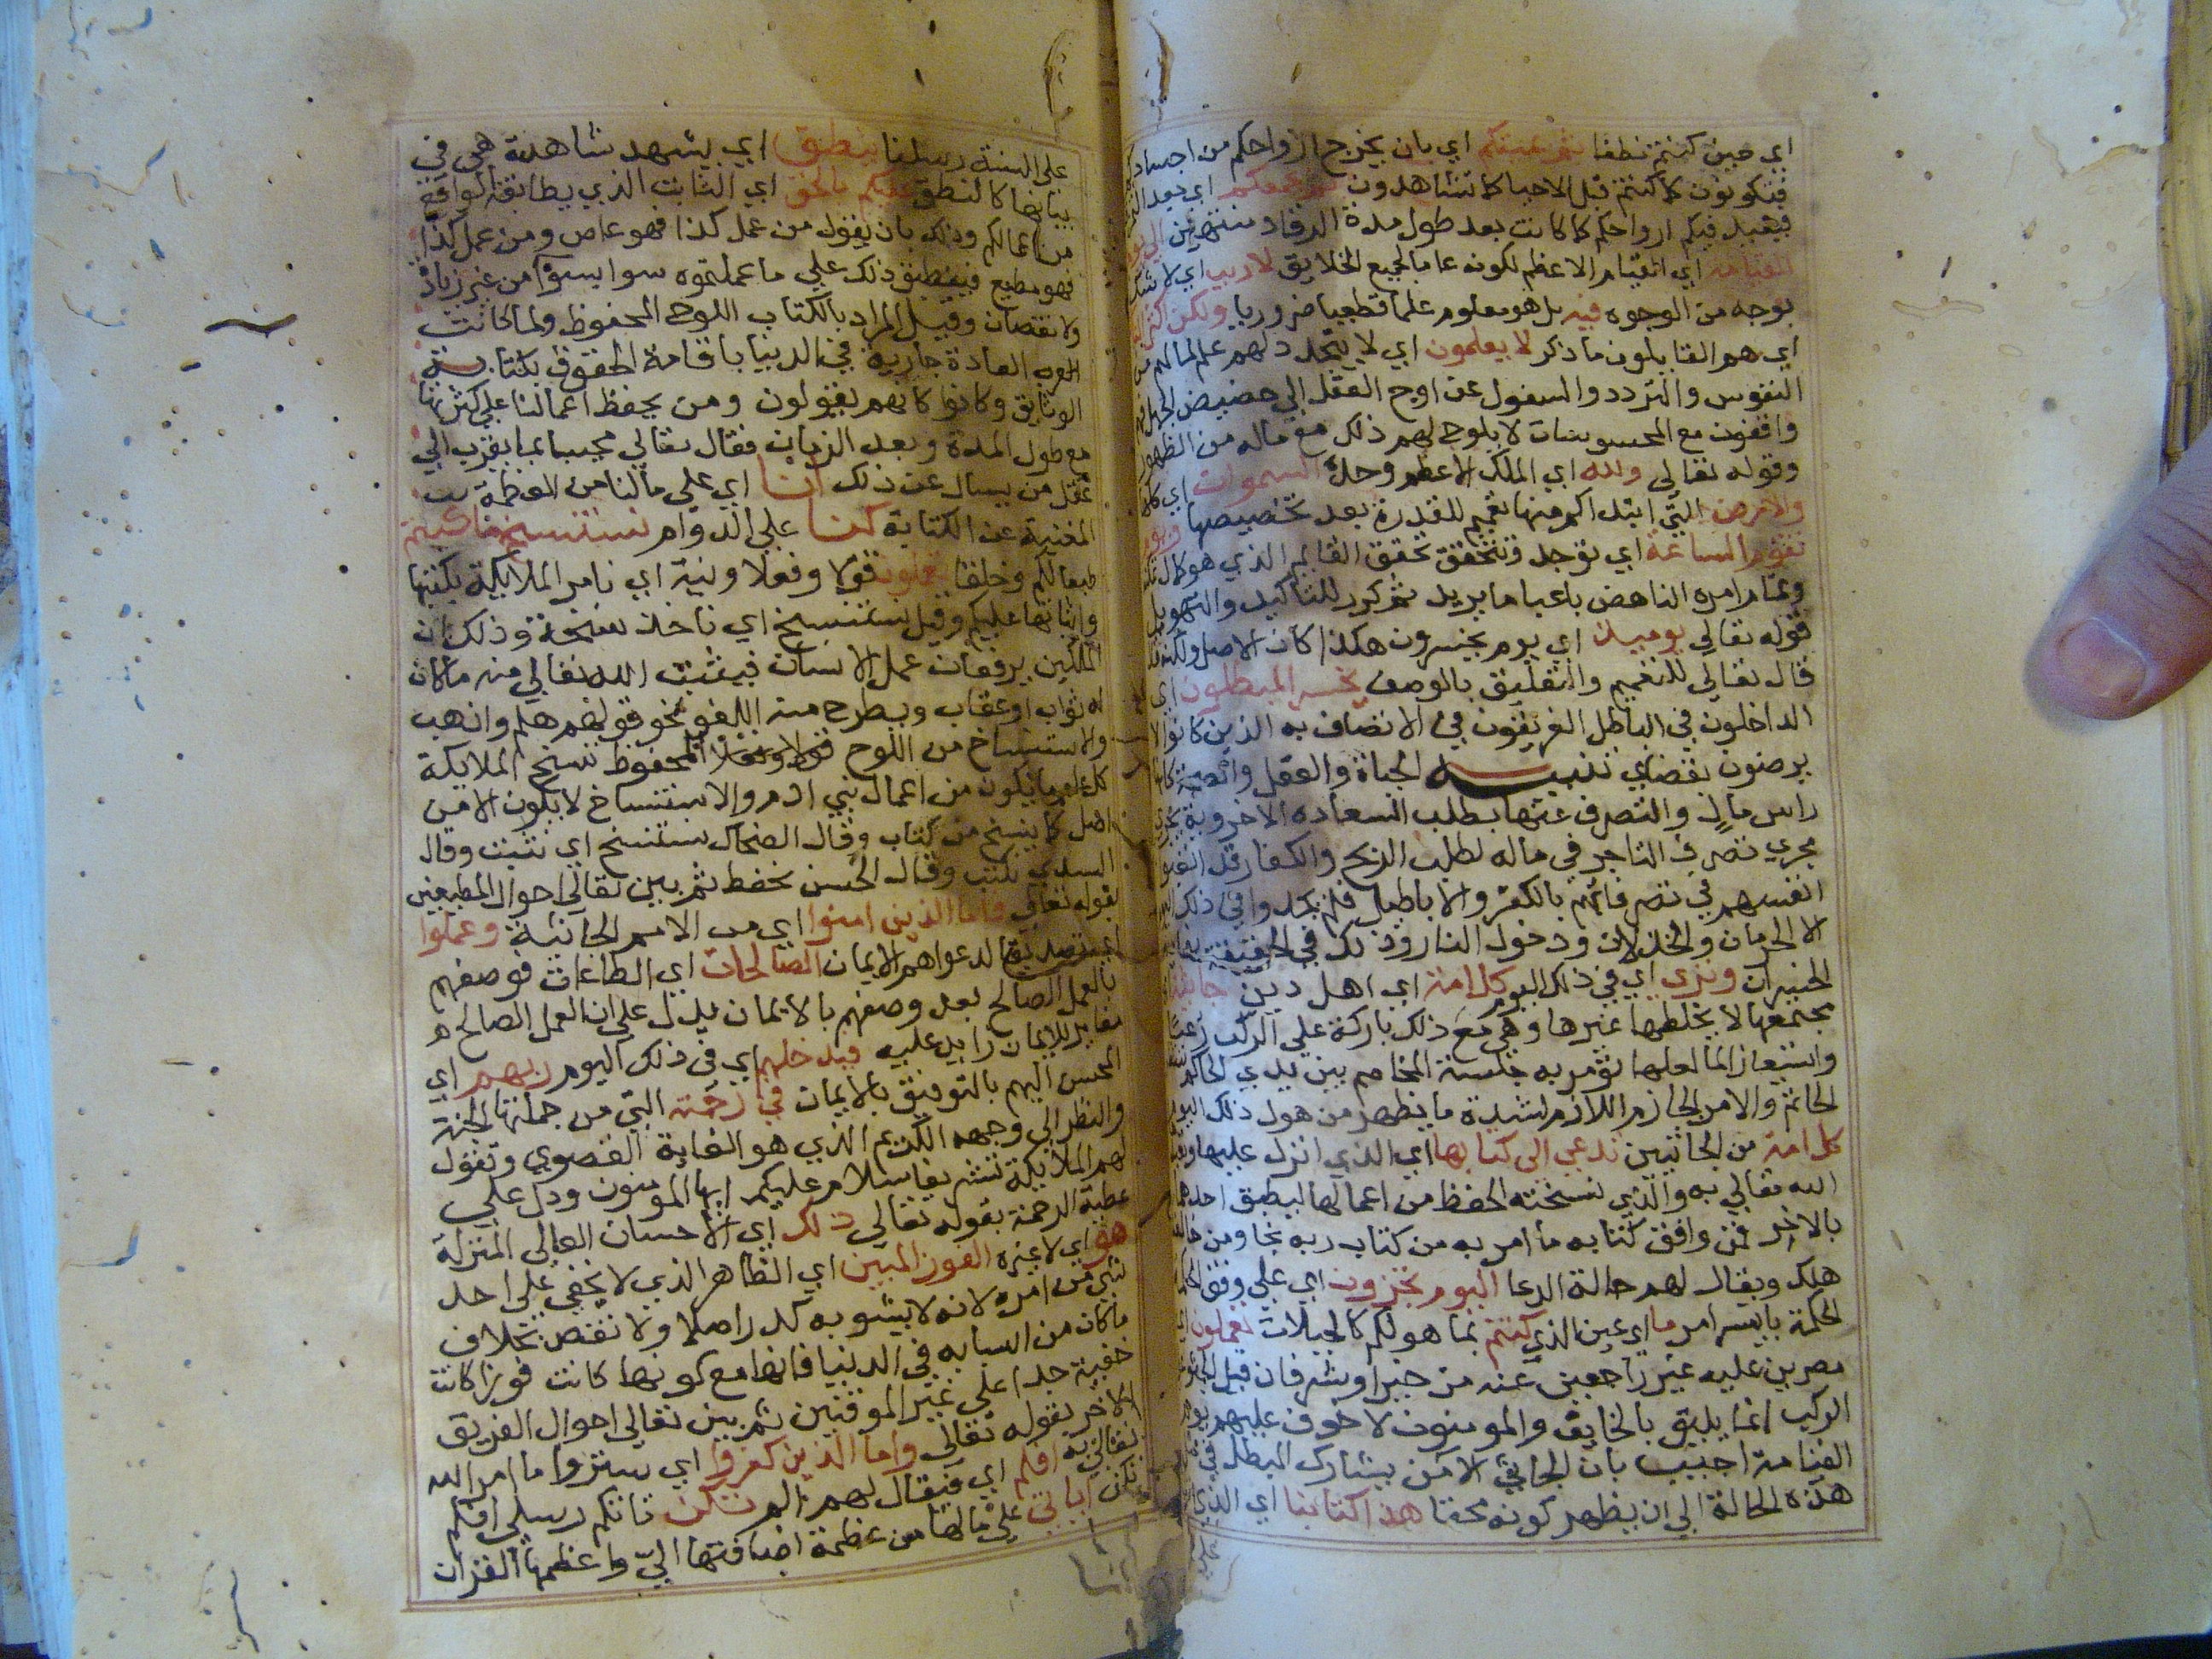 اي حين كنتم نطفا ثم يميتكم اي بان يخرج ارواحكم من اجسادكم
فتكونون كما كنتم قبل الاحيا كما تشاهدون ثم يجمعكم اي بعد
فيعيد فيكم ارواحكم كما كانت بعد طول مدة الرقاد منتهين الي يوم
القيامة اي القيام الاعظم لكونه عاما لجميع الخلايق لا ريب اي لا شك
بوجه من الوجوه فيه بل هو معلوم علما قطعيا ضروريا ولكن اكثر الناس
اي هم القايلون ما ذكر لا يعلمون اي لا يتجدد لهم علم لما لهم من
النفوس والتردد والسفول عن اوج العقل الي حضيض الجهل فهم
واقفون مع المحسوسات لا يلوح لهم ذلك مع ماله من الظهور
وقوله تعالى ولله اي الملك الاعظم وحده ملك السموات اي كلها
والارض التي ابتداكم منها تعميم للقدرة بعد تخصيصها ويوم
تقوم الساعة اي توجد وتتحقق تحقق القايم الذي هو كمال
وتمام امره الناهض باعبا ما يريد ثم كرر للتاكيد والتهويل
قوله تعالي يوميذ اي يوم يخسرون هكذا كان الاصل ولكنه
قال تعالي للتعميم والتعليق بالوصف يخسر المبطلون اي
الداخلون في الباطل الغريقون في الاتصاف به الذين كانوا لا
يرضون بقضاي تنبيه الحياة والعقل والصحة كانها
راس مال والتصرف عنها بطلب السعاده الاخروية يجري
مجري تصرف التاجر في ماله لطلب الربح والكفار قد اتعبوا
انفسهم في تصرفاتهم بالكفر والاباطيل فلم يجدوا في ذلك اليوم
الا الحرمان والخذلان ودخول النار وذلك في الحقيقة نهاية
الخسران وتري اي في ذلك اليوم كل امة اي اهل دين جاثية
مجتمعة لا يخلطها غيرها وهي مع ذلك باركة علي الركب رعبا
واستيفازا لما لعلها تؤمر به جلسة المخاصم بين يدي الحاكم
الحاتم والامر الجازم اللازم لشدة ما يظهر من هول ذلك اليوم
كل امة من الجاثيين تدعي الي كتابها اي الذي انزل عليها
الله تعالي به والذي نسخته الحفظة من اعمالها ليطبق احدهما
بالاخر فمن وافق كتابه ما امر به من كتاب ربه نجا ومن خالفه
هلك ويقال لهم حالة الدعا اليوم تجزون اي علي وفق
الحكمة بايسر امر ما اي عين الذي كنتم بما هو لكم كالجبلات تعملون اي
مصرين عليه غير راجعين عنه من خير او شر فان قيل الجثو
الركب انما يليق بالخايف والمومنون لا خوف عليهم يوم
القيامة اجيب بان الجاثي الامن يشارك المبطل في
هذه الحالة الي ان يظهر كونه محقا هذا كتابنا اي الذي
على السنة رسلنا ينطق اي يشهد شاهدة هي في
بيانها كالنطق عليكم بالحق اي الثابت الذي يطابقه الواقع
من اعمالكم وذلك بان يقول من عمل كذا فهو عاص ومن عمل كذا
فهو مطيع فينطبق ذلك على ما عملتموه سوا بسوا من غير زيادة
ولا نقصان وقيل المراد بالكتاب اللوح المحفوظ ولما كانت
العادة جارية في الدنيا باقامة الحقوق بكتابة
الوثايق وكانوا كانهم يقولون ومن يحفظ اعمالنا علي كثرتها
مع طول المدة وبعد الزمان فقال تعالي مجيبا بما يقرب الي
عقل من يسال عن ذلك انا اي علي ما لنا من العظمة
المغنية عن الكتابة كنا علي الدوام نستنسخ ما كنتم
طبعا لكم وخلقا تعملون قولا وفعلا ونية اي نامر الملايكة بكتبها
واثباتها عليكم وقيل نستنسخ اي ناخذ نسخة وذلك ان
الملكين يرفعان عمل الانسان فيثبت الله تعالي منه ما كان
له ثواب او عقاب ويطرح منه اللغو نحو قولهم هلم واذهب
والاستنساخ من اللوح المحفوظ تنسخ الملايكة
كل عام ما يكون من اعمال بني ادم والاستنساخ لا يكون الا من
اصل كما ينسخ من كتاب وقال الضحاك نستنسخ اي نثبت وقال
السدي نكتب وقال الحسن نحفظ ثم بين تعالي احوال المطيعين
بقوله تعالي فاما الذين امنوا اي من الامم الجاثية وعملوا
اي تصديقا لدعواهم الايمان الصالحات اي الطاعات فوصفهم
بالعمل الصالح بعد وصفهم بالايمان يدل علي ان العمل الصالح
مغاير للايمان زايد عليه فيدخلهم اي في ذلك اليوم ربهم اي
المحسن اليهم بالتوفيق بالايمان في رحمته التي من جملتها الجنة
والنظر الي وجهه الكريم الذي هو الغاية القصوي وتقول
لهم الملايكة تشريفا سلام عليكم ايها المومنون ودل علي
عظمة الرحمة بقوله تعالي ذلك اي الاحسان العالي المنزلة
هو اي لا غيره الفوز المبين اي الظاهر الذي لا يخفي علي احد
شي من امره لانه لا يشوبه كدر اصلا ولا نقص بخلاف
ما كان من اسبابه في الدنيا فانها مع كونها كانت فوزا كانت
خفية جدا على غير الموقنين ثم بين تعالي احوال الفريق
الاخر بقوله تعالي واما الذين كفروا اي ستروا ما امر الله
تعالي به افلم اي فيقال لهم الم تكن تاتكم رسلي افلم
تكن اياتي علي ما لها من عظمة اضافتها الي واعظمها القران